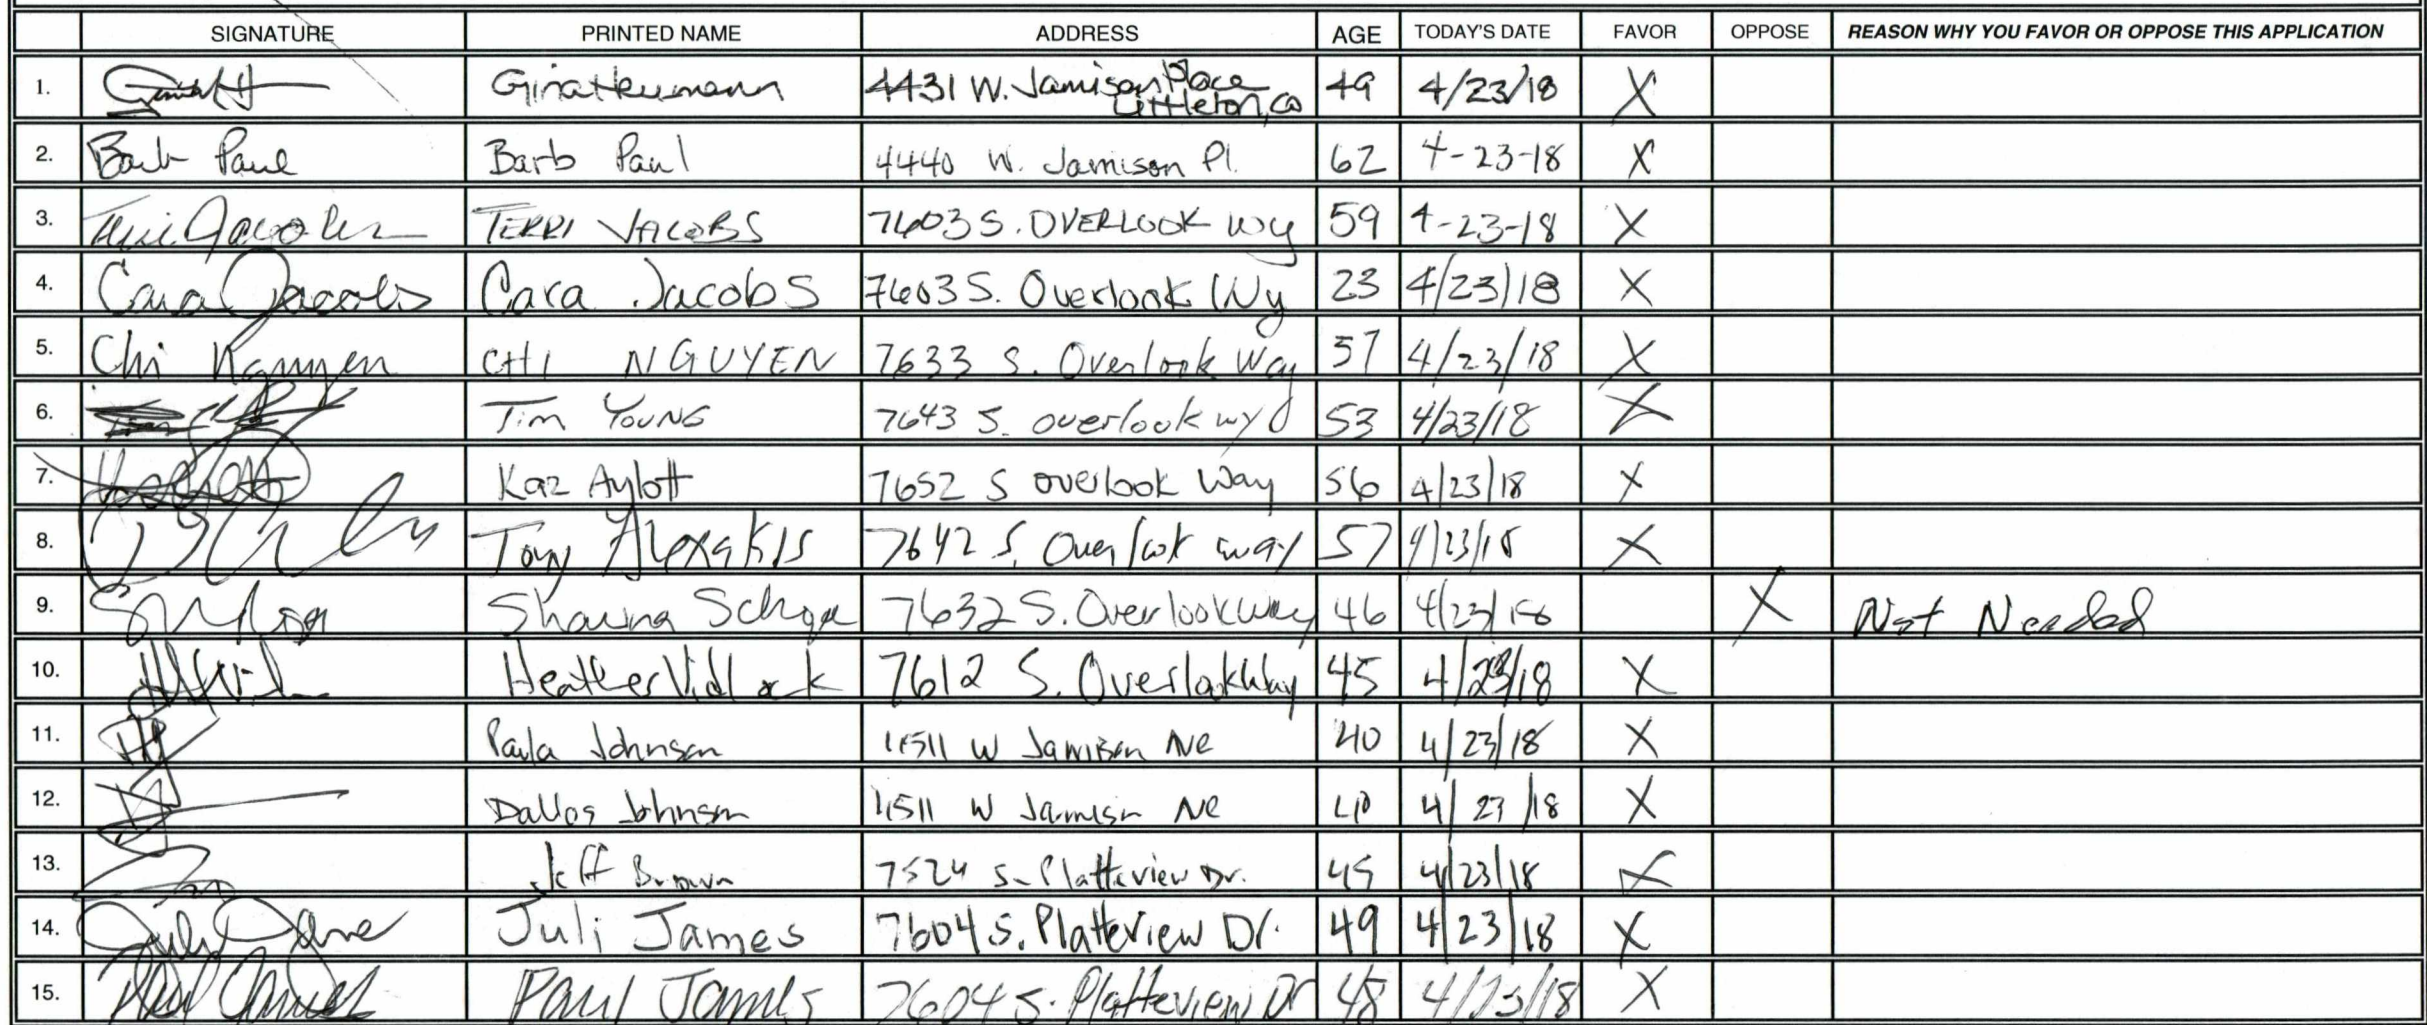 SIGNATURE PRINTED NAME ADDRESS AGE TODAY'S DATE FAVOR OPPOSE REASON WHY YOU FAVOR OR OPPOSE THIS APPLICATION
1. Gina Heumann 4431 W. Jamison Place Littleton, Co 49 4/23/18 X
2. Barb Paul Barb Paul 4440 W. Jamison Pl. 62 4-23-18 X
3. Terri Jacobs TERRI JACOBS 7603 S. OVERLOOK Wy 59 4-23-18 X
4. Cara Jacobs Cara Jacobs 7603 S. Overlook Wy 23 4/23/18 X
5. Chi Nguyen CHI NGUYEN 7633 S. Overlook Way 57 4/23/18 X
6. Tim YOUNG 7643 S. overlook wy 53 4/23/18 X
7. Kaz Aylott 7652 S overlook Way 56 4/23/18 X
8. Tony Alexakis 7642 S. Overlook way 57 4/23/18 X
9. Shauna 7632 S. Overlook Way 46 4/23/18 X Not Needed
10. Heather Vidlock 7612 S. Overlook Way 45 4/23/18 X
11. Paula Johnson 4511 W Jamison Ave 40 4/23/18 X
12. Dallas Johnson 4511 W Jamison Ave 40 4/23/18 X
13. Jeff Brown 7524 S. Platteview Dr. 45 4/23/18 X
14. Juli James 7604 S. Platteview Dr. 49 4/23/18 X
15. Paul James Paul James 7604 S. Platteview Dr 48 4/23/18 X